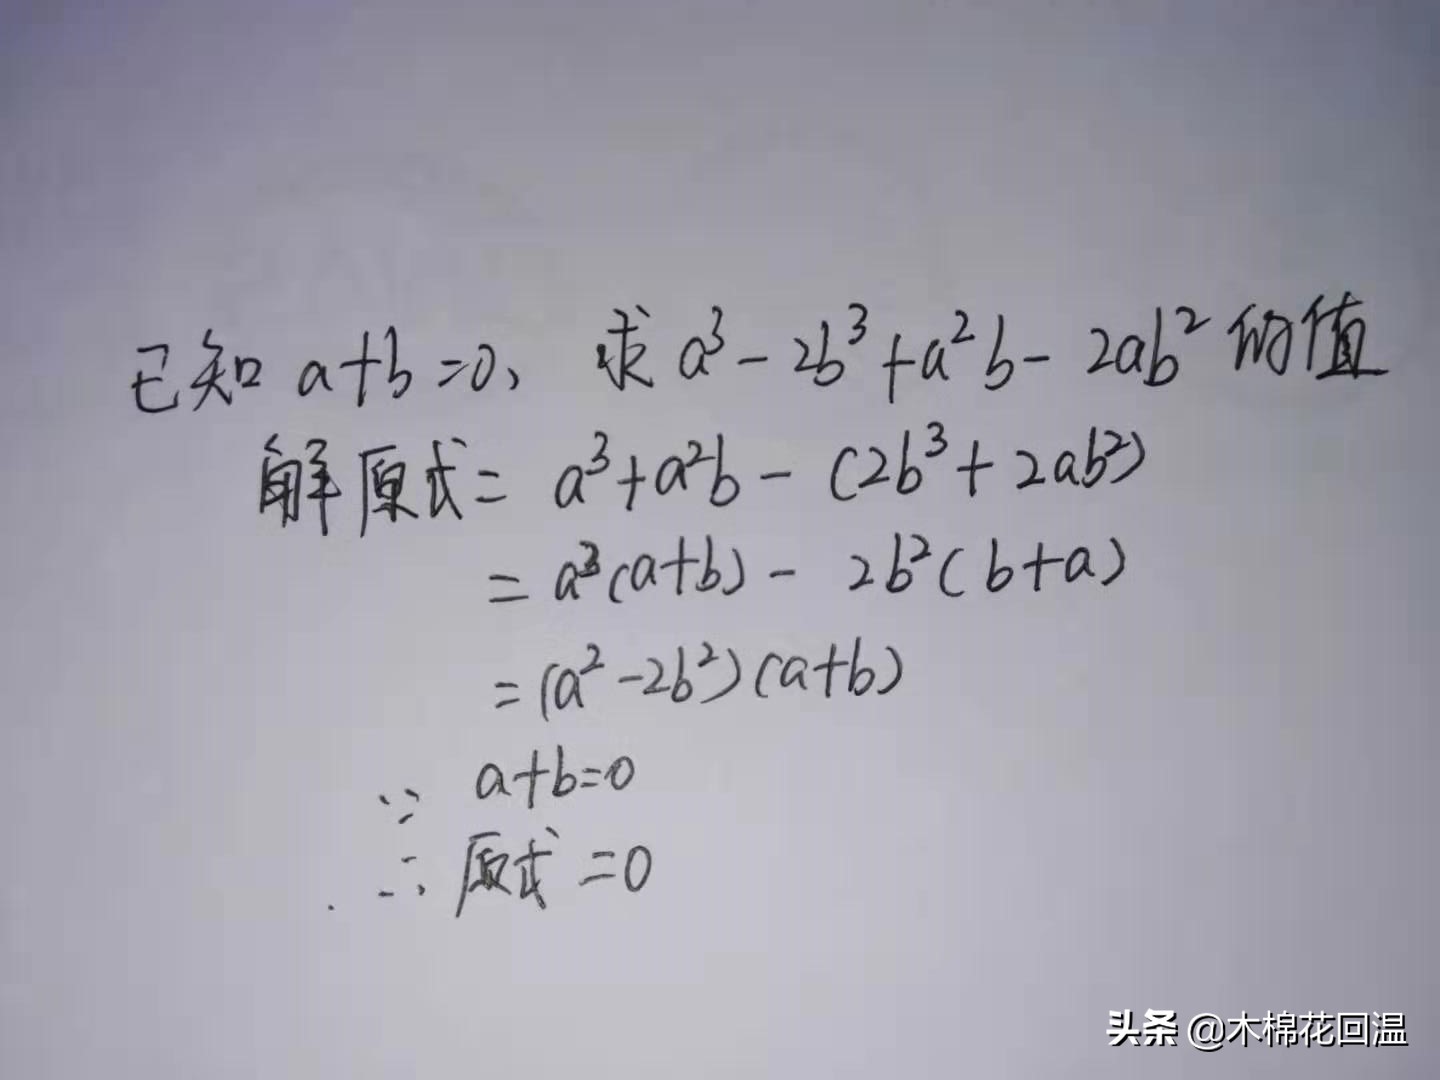 已知 a+b=0、 求 a³-2b³+a²b-2ab² 的值
解原式= a³+a²b-(2b³+2ab²)
= a²(a+b)- 2b²(b+a)
=(a²-2b²)(a+b)
∵ a+b=0
∴ 原式=0
头条 @木棉花回温